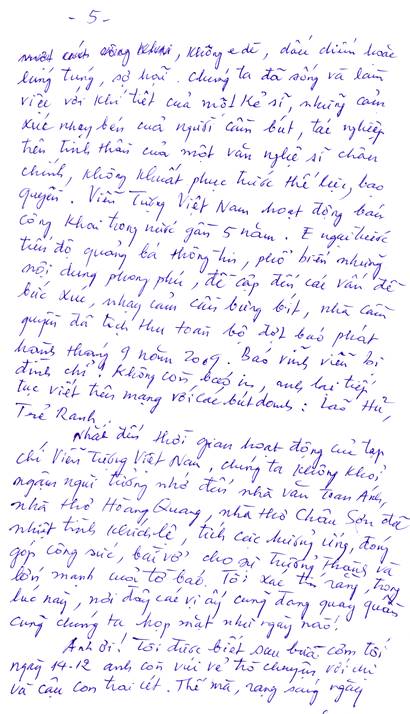 - 5 -
một cách công khai, không e dè, dấu diếm hoặc
lúng túng, sợ hãi. Chúng ta đã sống và làm
việc với khí tiết của một kẻ sĩ, những cảm
xúc nhạy bén của người cầm bút, tác nghiệp
trên tinh thần của một văn nghệ sĩ chân
chính, không khuất phục trước thế lực, bạo
quyền. Viễn Tượng Việt Nam hoạt động bán
công khai trong nước gần 5 năm. E ngại trước
tiến độ quảng bá thông tin, phổ biến những
nội dung phong phú, đề cập đến các vấn đề
bức xúc, nhạy cảm cần bưng bít, nhà cầm
quyền đã tịch thu toàn bộ đợt báo phát
hành tháng 9 năm 2009. Báo vĩnh viễn bị
đình chỉ! Không còn báo in, anh lại tiếp
tục viết trên mạng với các bút danh: Lão Hủ,
Trẻ Ranh.
Nhắc đến thời gian hoạt động của tạp
chí Viễn Tượng Việt Nam, chúng ta không khỏi
ngậm ngùi tưởng nhớ đến nhà văn Toan Ánh,
nhà thơ Hoàng Quang, nhà thơ Châu Sơn đã
nhiệt tình khích lệ, tích cực hưởng ứng, đóng
góp công sức, bài vở cho sự trưởng thành và
lớn mạnh của tờ báo. Tôi xác tín rằng, trong
lúc này, nơi đây các vị ấy cũng đang quây quần
cùng chúng ta họp mặt như ngày nào!
Anh ơi! Tôi được biết sau bữa cơm tối
ngày 14-12 anh còn vui vẻ trò chuyện với chị
và cậu con trai út. Thế mà, rạng sáng ngày